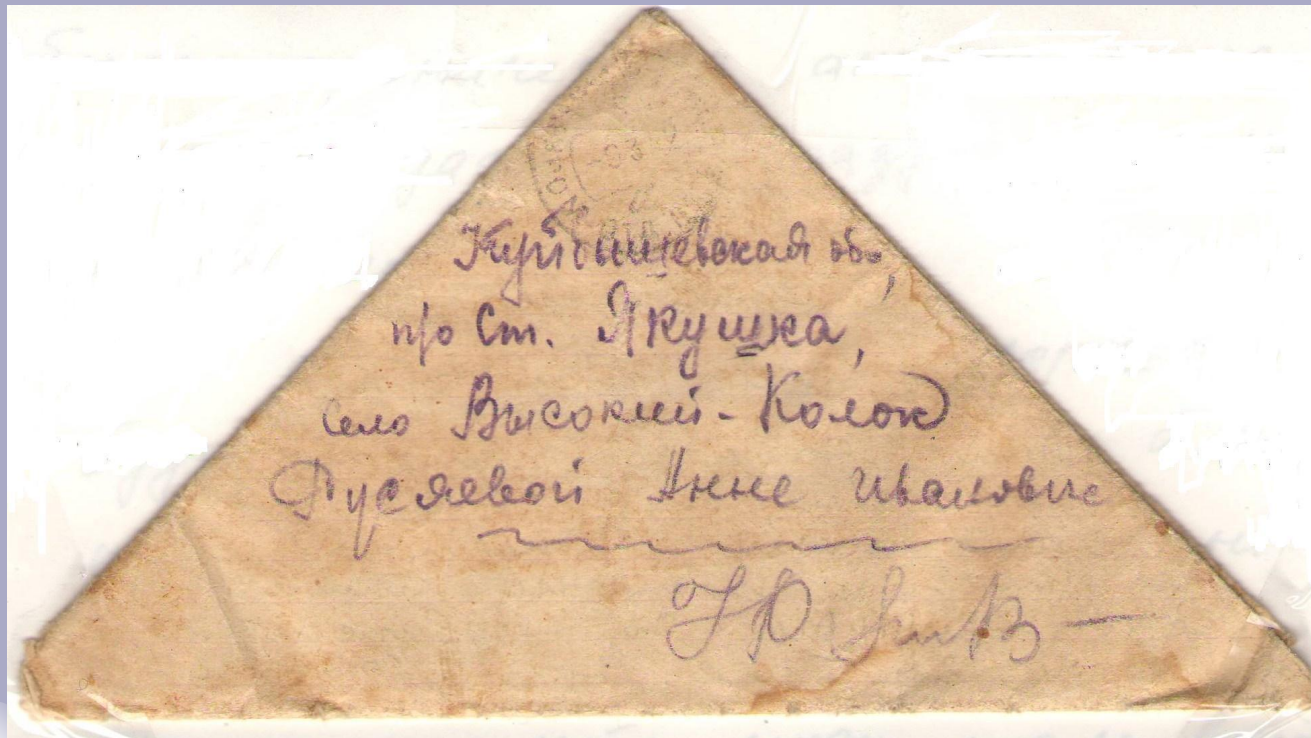 Куйбышевская об.,
п/о Ст. Якушка,
село Высокий-Колок
Русяевой Анне Ивановне